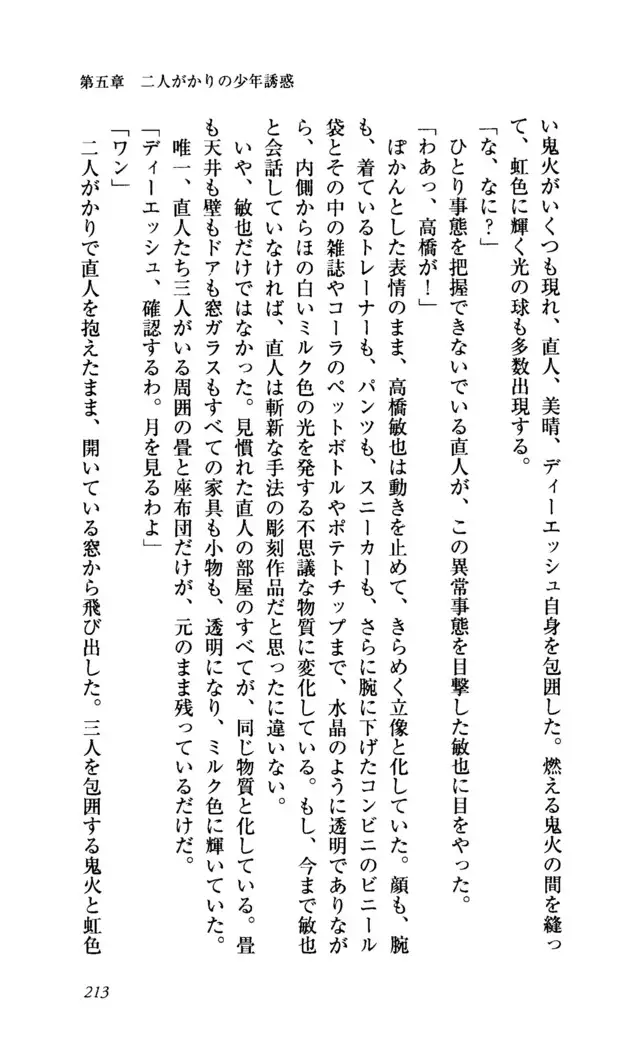 第五章　二人がかりの少年誘惑
い鬼火がいくつも現れ、直人、美晴、ディーエッシュ自身を包囲した。燃える鬼火の間を縫っ
て、虹色に輝く光の球も多数出現する。
「な、なに？」
ひとり事態を把握できないでいる直人が、この異常事態を目撃した敏也に目をやった。
「わあっ、高橋が！」
ぽかんとした表情のまま、高橋敏也は動きを止めて、きらめく立像と化していた。顔も、腕
も、着ているトレーナーも、パンツも、スニーカーも、さらに腕に下げたコンビニのビニール
袋とその中の雑誌やコーラのペットボトルやポテトチップまで、水晶のように透明でありなが
ら、内側からほの白いミルク色の光を発する不思議な物質に変化している。もし、今まで敏也
と会話していなければ、直人は斬新な手法の彫刻作品だと思ったに違いない。
いや、敏也だけではなかった。見慣れた直人の部屋のすべてが、同じ物質と化している。畳
も天井も壁もドアも窓ガラスもすべての家具も小物も、透明になり、ミルク色に輝いていた。
唯一、直人たち三人がいる周囲の畳と座布団だけが、元のまま残っているだけだ。
「ディーエッシュ、確認するわ。月を見るわよ」
「ワン」
二人がかりで直人を抱えたまま、開いている窓から飛び出した。三人を包囲する鬼火と虹色
213